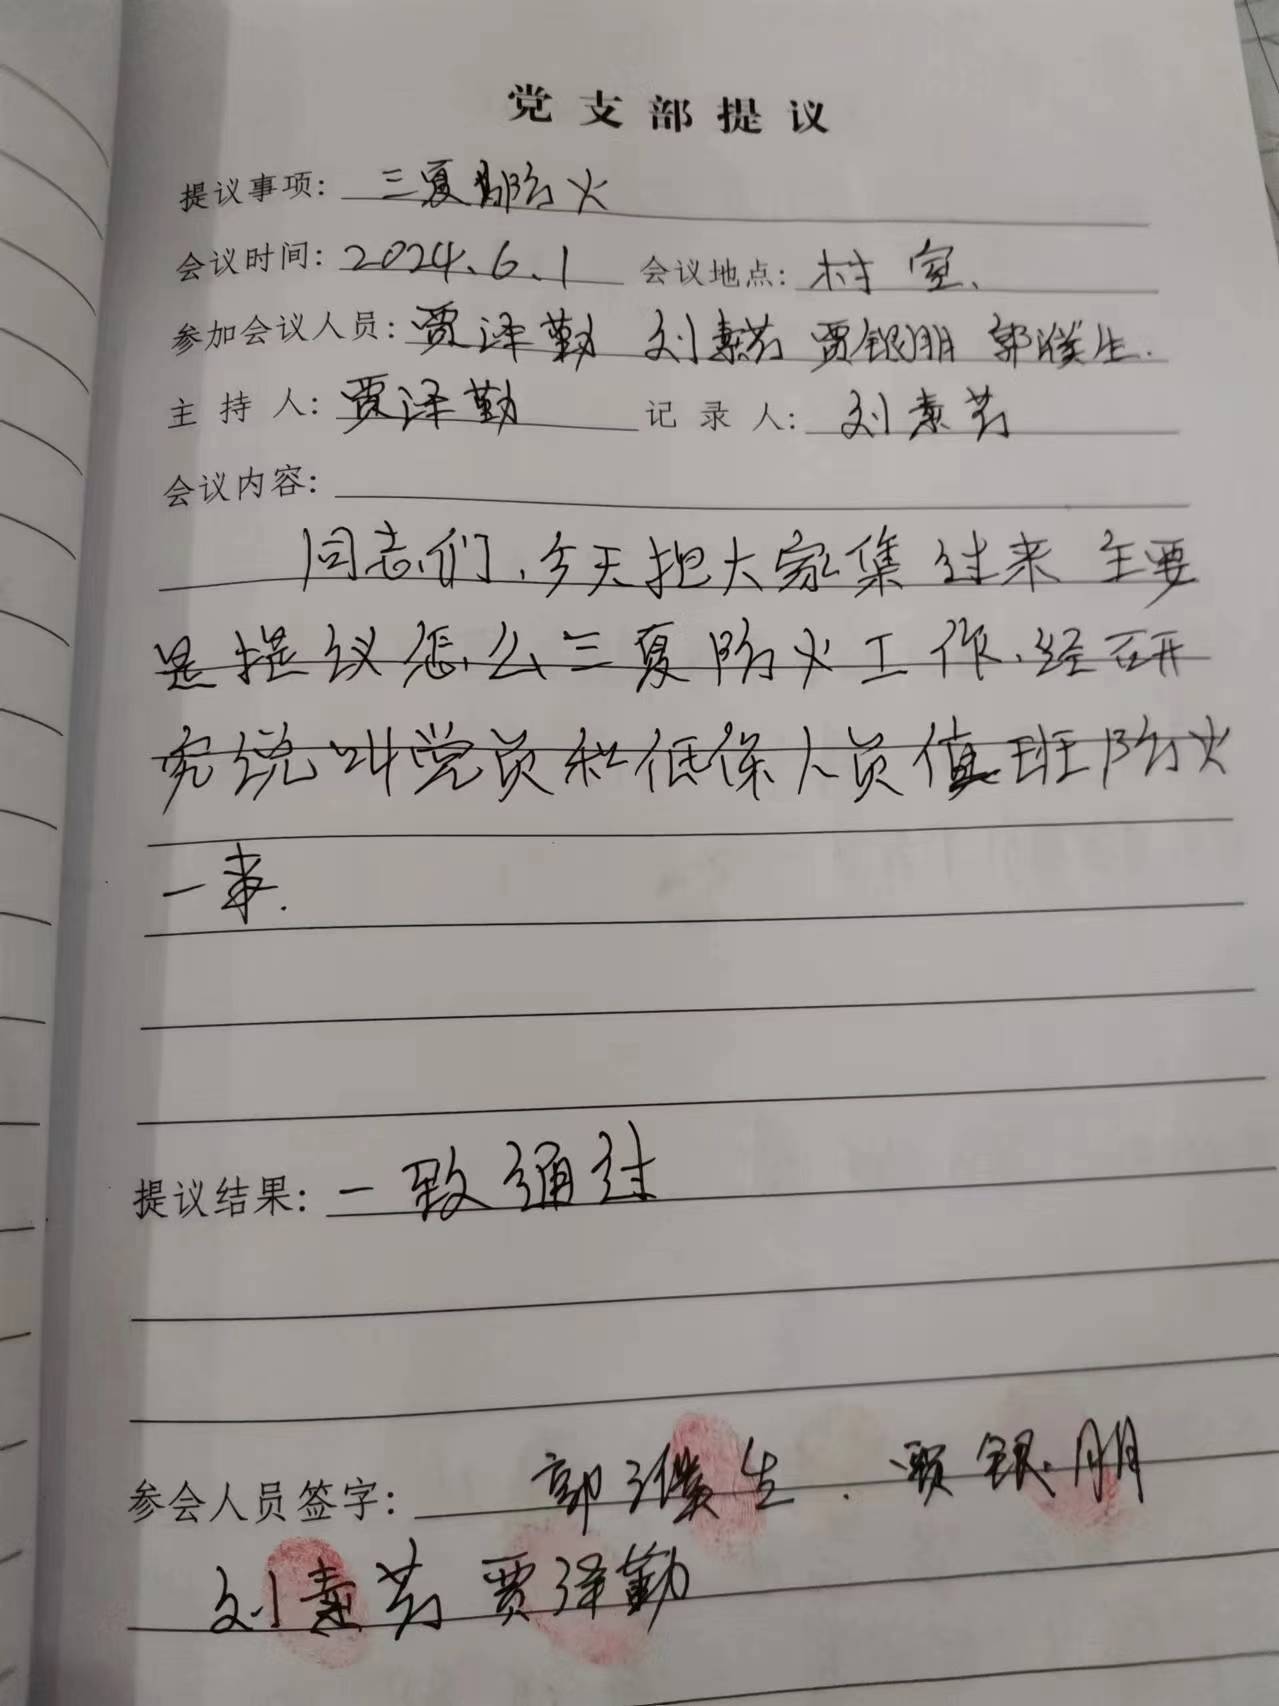 党支部提议
提议事项：三夏防火
会议时间：2024.6.1 会议地点：村室.
参加会议人员：贾泽勤 刘素芳 贾银朋 郭濮生.
主持人：贾泽勤 记录人：刘素芳
会议内容：
同志们,今天把大家集过来 主要
是提议怎么三夏防火工作.经研
究说叫党员和低保人员值班防火
一事.
提议结果：一致通过
参会人员签字：郭濮生.贾银朋
刘素芳 贾泽勤